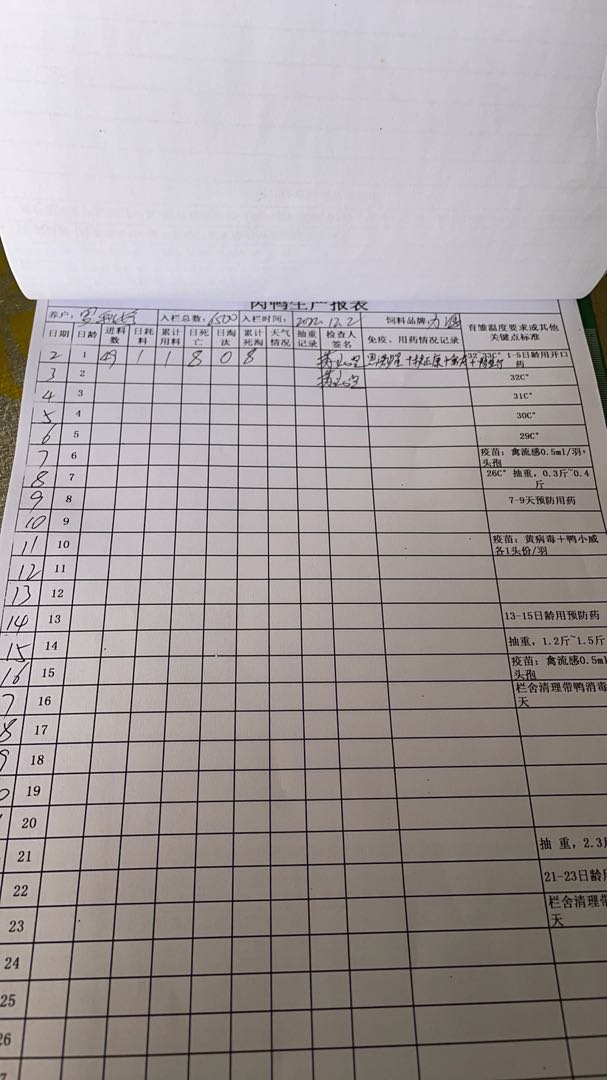 肉鸭生产报表
养户： 入栏总数：6500 入栏时间：2022.12.2 饲料品牌：
日期 日龄 进料数 日耗料 累计用料 日死亡 日淘汰 累计死淘 天气情况 抽重记录 检查人签名 免疫、用药情况记录 育雏温度要求或其他关键点标准
2 1 49 1 1 8 0 8 32~33C° 1-5日龄用开口药
3 2 32C°
4 3 31C°
5 4 30C°
6 5 29C°
7 6 疫苗：禽流感0.5ml/羽+头孢
8 7 26C° 抽重，0.3斤~0.4斤
9 8 7-9天预防用药
10 9
11 10 疫苗：黄病毒＋鸭小威各1头份/羽
12 11
13 12
14 13 13-15日龄用预防药
15 14 抽重，1.2斤~1.5斤
16 15 疫苗：禽流感0.5ml 头孢
7 16 栏舍清理带鸭消毒 天
8 17
9 18
0 19
20
21 抽 重，2.3斤
22 21-23日龄用
23 栏舍清理带 天
24
25
26